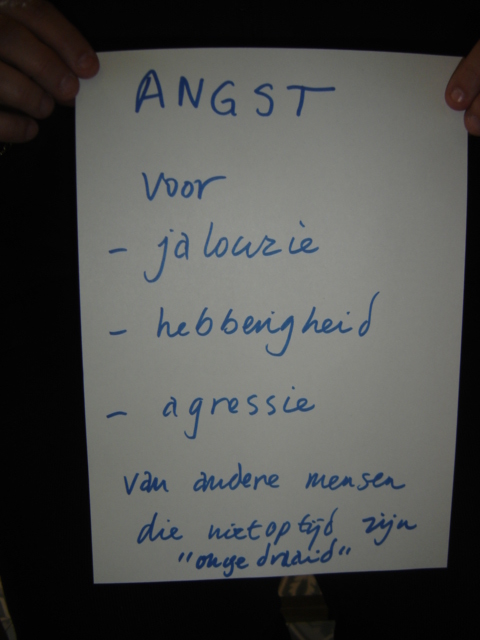 ANGST
voor
- jalouzie
- hebberigheid
- agressie
van andere mensen
die niet op tijd zijn
"omgedraaid"